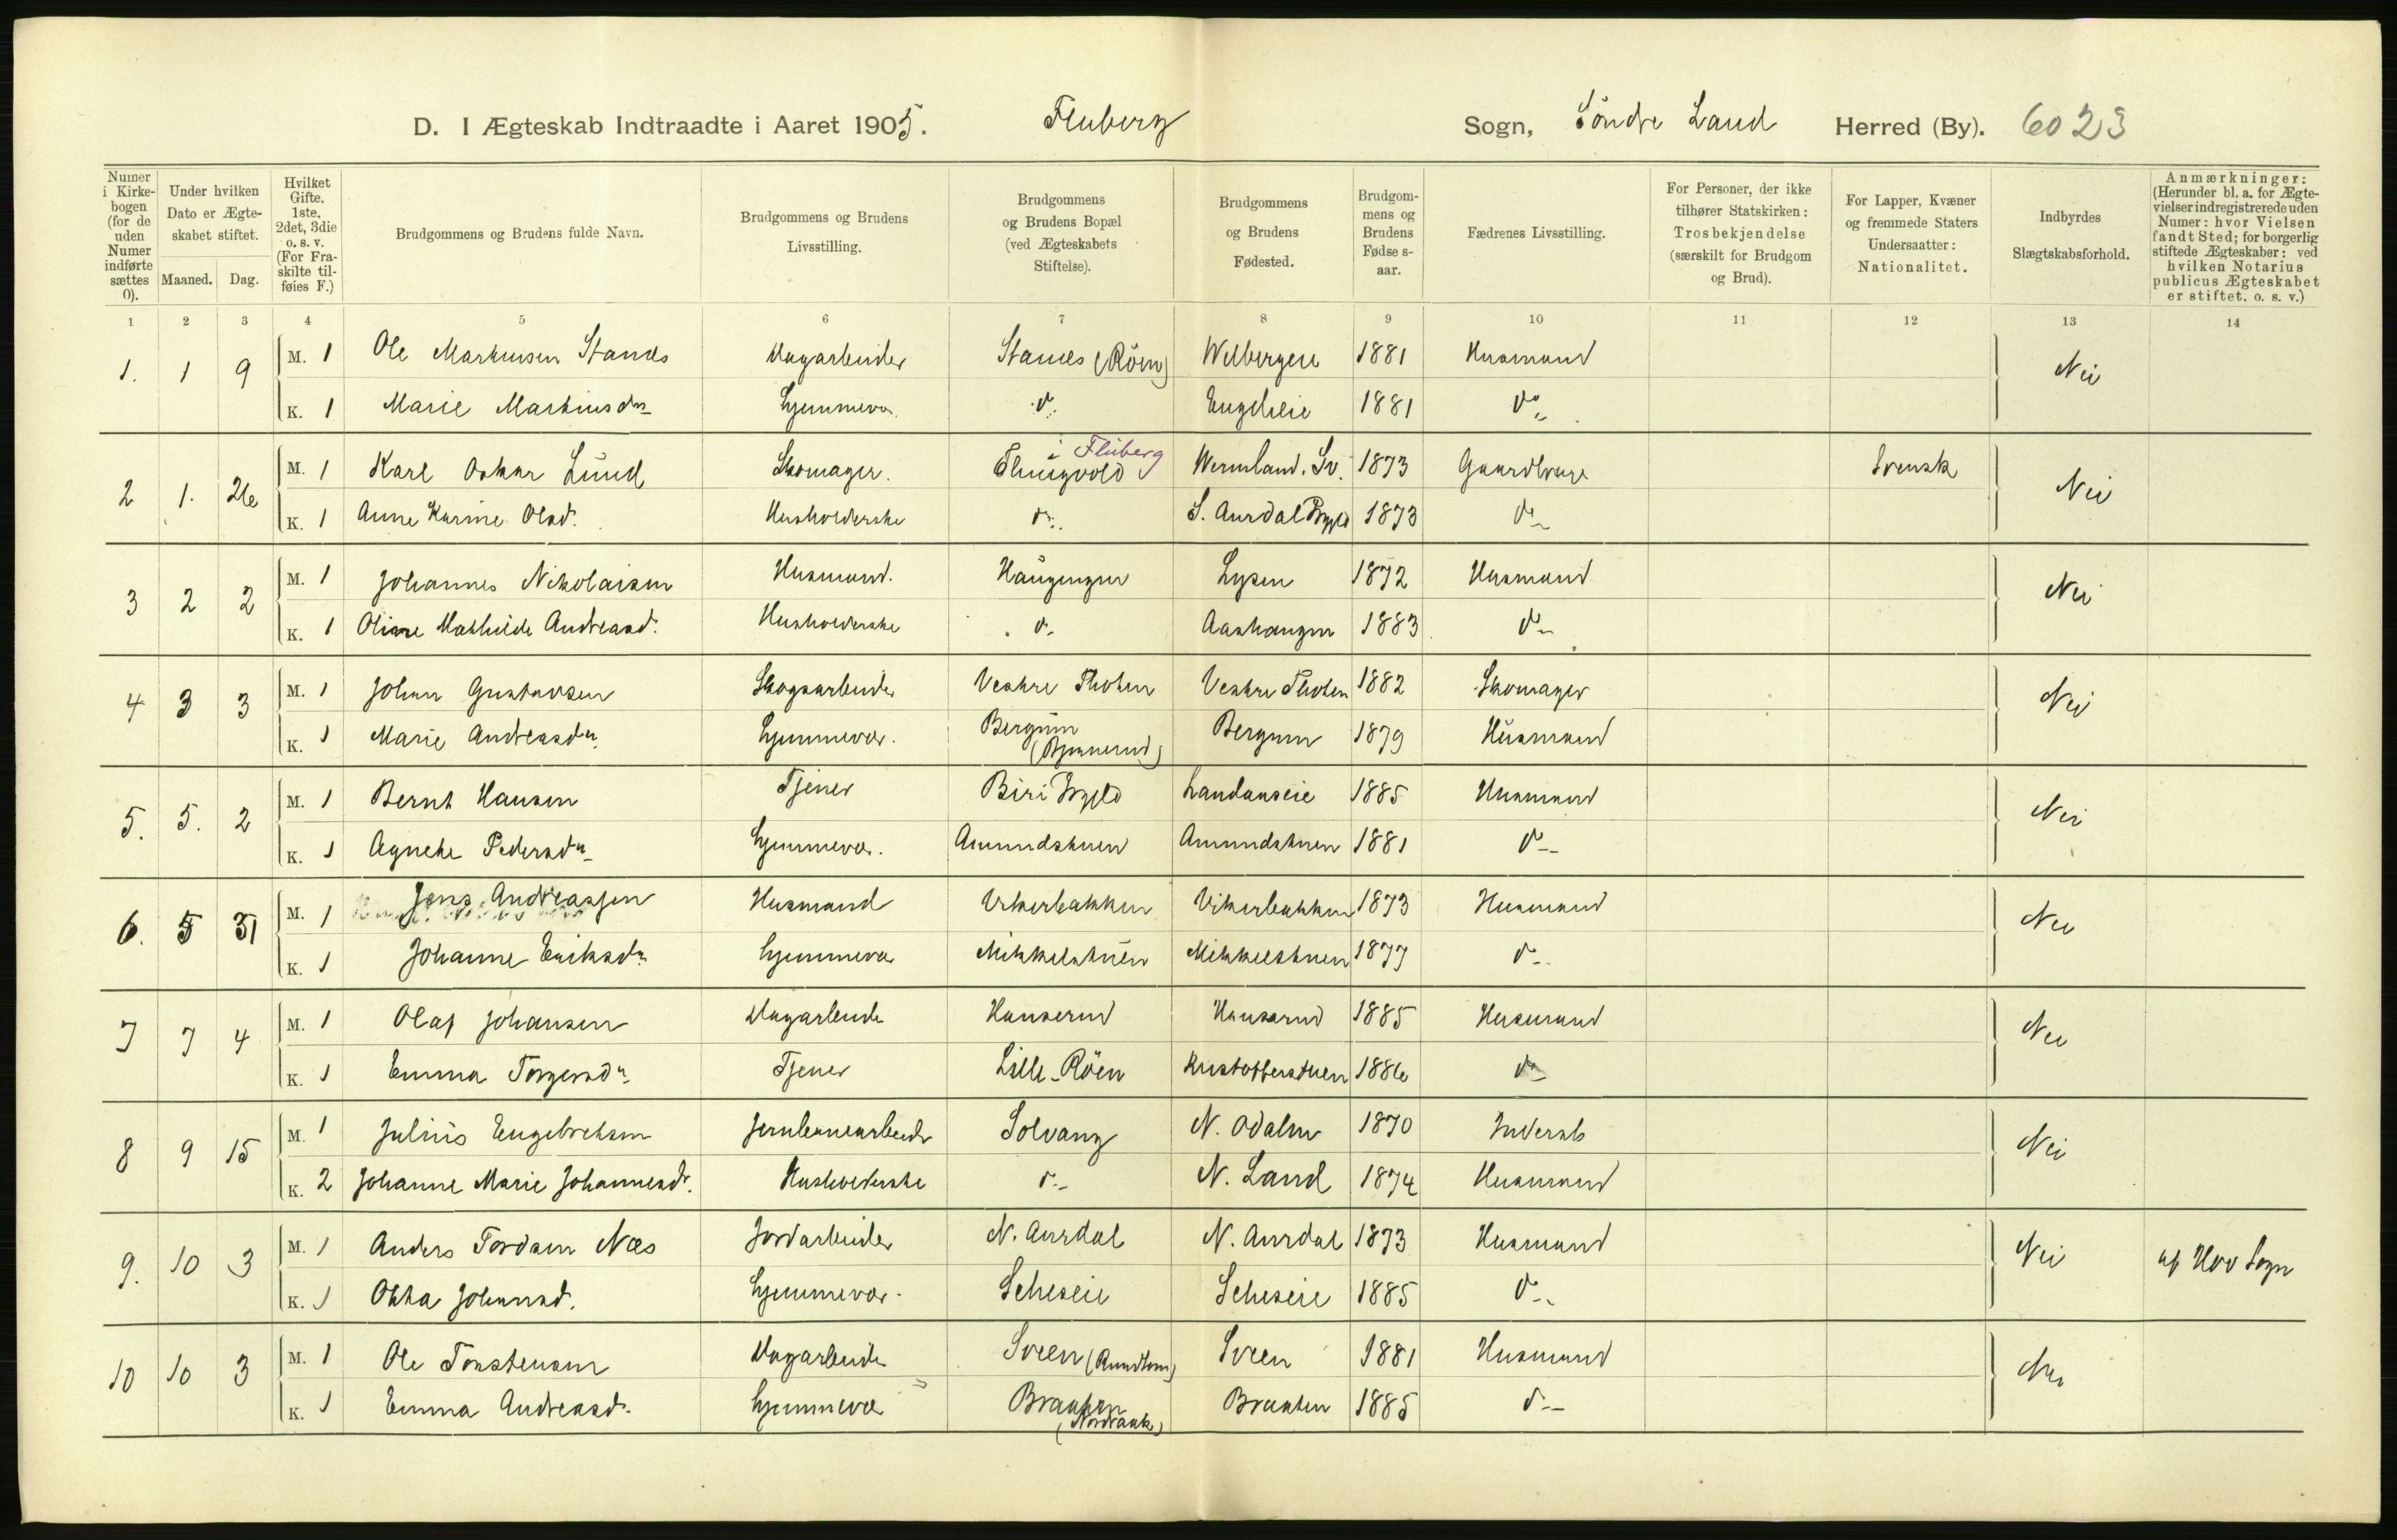 D. I Ægteskab Indtraadte i Aaret 1905. Fluberg Sogn, Söndre Land Herred (By). 6023
Numer i Kirkebogen (for de uden Numer indførte sættes 0).
Under hvilken Dato er Ægteskabet stiftet.
Maaned. Dag.
Hvilket Gifte. 1ste, 2det, 3die o. s. v. (For Fraskilte tilføies F.)
Brudgommens og Brudens fulde Navn.
Brudgommens og Brudens Livsstilling.
Brudgommens og Brudens Bopæl (ved Ægteskabets Stiftelse).
Brudgommens og Brudens Fødested.
Brudgommens og Brudens Fødselsaar.
Fædrenes Livsstilling.
For Personer, der ikke tilhører Statskirken: Trosbekjendelse (særskilt for Brudgom og Brud).
For Lapper, Kvæner og fremmede Staters Undersaatter: Nationalitet.
Indbyrdes Slægtskabsforhold.
Anmærkninger: (Herunder bl. a. for Ægtevielser indregistrerede uden Numer: hvor Vielsen fandt Sted; for borgerlig stiftede Ægteskaber: ved hvilken Notarius publicus Ægteskabet er stiftet, o. s. v.)
1 2 3 4 5 6 7 8 9 10 11 12 13 14
1. 1 9 M. 1 Ole Martinsen Stanes Dagarbeider Stanes (Röen) 1881 Husmand Nei
K. 1 Marie Martinsdtr hjemmevær. do 1881 do
2 1. 26 M. 1 Karl Oskar Lund Skomager. i Fluberg Wermland. Sv. 1873 Gaardbruge Svensk Nei
K. 1 Anne Karine Olsd. Husholderske do S. Aurdal 1873 do
3 2 2 M. 1 Johannes Nikolaisen Husmand. Haugengen Lysen 1872 Husmand Nei
K. 1 Oline Mathilde Andreasd. Husholderske do Aashaugen 1883 do
4 3 3 M. 1 Johan Gustavsen Skogsarbeider Vestre Thoten Vestre Thoten 1882 Skomager Nei
K. 1 Marie Andreasdtr hjemmevær. Bergum Bergum 1879 Husmand
5. 5. 2 M. 1 Bernt Hansen Tjener Biri Landaaseie 1885 Husmand Nei
K. 1 Agnethe Pedersdtr hjemmevær. Amundstuen Amundstuen 1881 do
6. 5 31 M. 1 Jens Andreassen Husmand Vikerbakken Vikerbakken 1873 Husmand Nei
K. 1 Johanne Eriksdtr hjemmevær Mikkelstuen Mikkelstuen 1877 do
7 7 4 M. 1 Olaf Johansen Dagarbeide Hanserud Hanserud 1885 Husmand Nei
K. 1 Emma Torgersdtr Tjener Lille-Röen Kristofferstuen 1886 do
8 9 15 M. 1 Julius Engebretsen Jernbanearbeider Solvang N. Odalen 1870 Inderst Nei
K. 2 Johanne Marie Johannesdtr. Husholderske do N. Land 1874 Husmand
9. 10 3 M. 1 Anders Tordsen Næs Jordarbeider N. Aurdal N. Aurdal 1873 Husmand Nei af Hov Sogn
K. 1 Johansd. hjemmevær. 1885 do
10 10 3 M. 1 Ole Torstensen Dagarbeide Sveen Sveen 1881 Husmand Nei
K. 1 Emma Andreasd. hjemmevær Braaten Braaten 1885 do